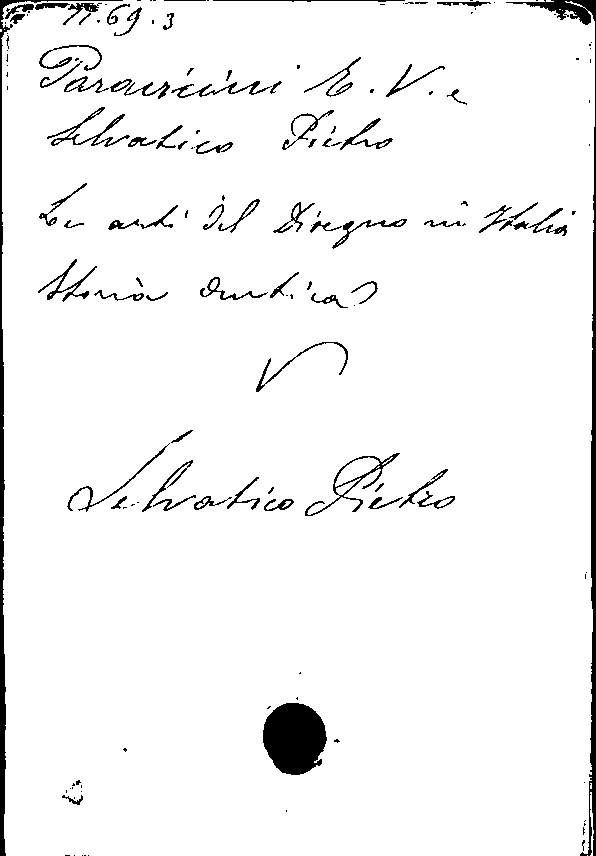 11.69.3
Paravicini E. V. e
Selvatico Pietro
Le arti del Disegno in Italia
Storia antica
V
Selvatico Pietro